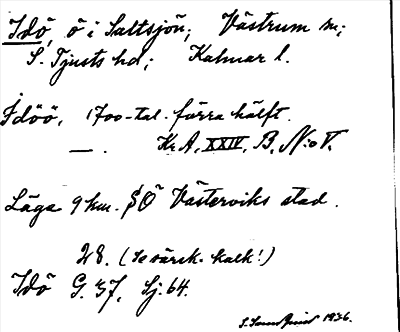 Idö, ö i Saltsjön; Västrum sn;
S. Tjusts hd; Kalmar l.
Idöö, 1700-tal. förra hälft.
— . Kr. A. XXIV, B, N:o V.
Läge 9 km. SÖ Västerviks stad.
28. (se särsk. kalk!)
Idö G. 37, Sj. 64.
1926.